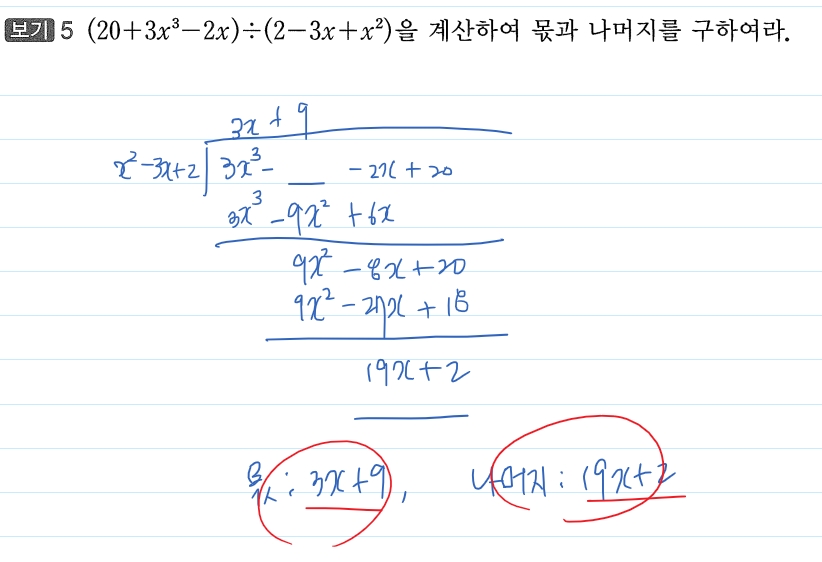 보기 5 (20+3x³−2x)÷(2−3x+x²)을 계산하여 몫과 나머지를 구하여라.
3x + 9
x²−3x+2 | 3x³− __ −2x + 20
3x³ −9x² + 6x
9x² − 8x + 20
9x² − 27x + 18
19x + 2
몫 : 3x+9, 나머지 : 19x+2